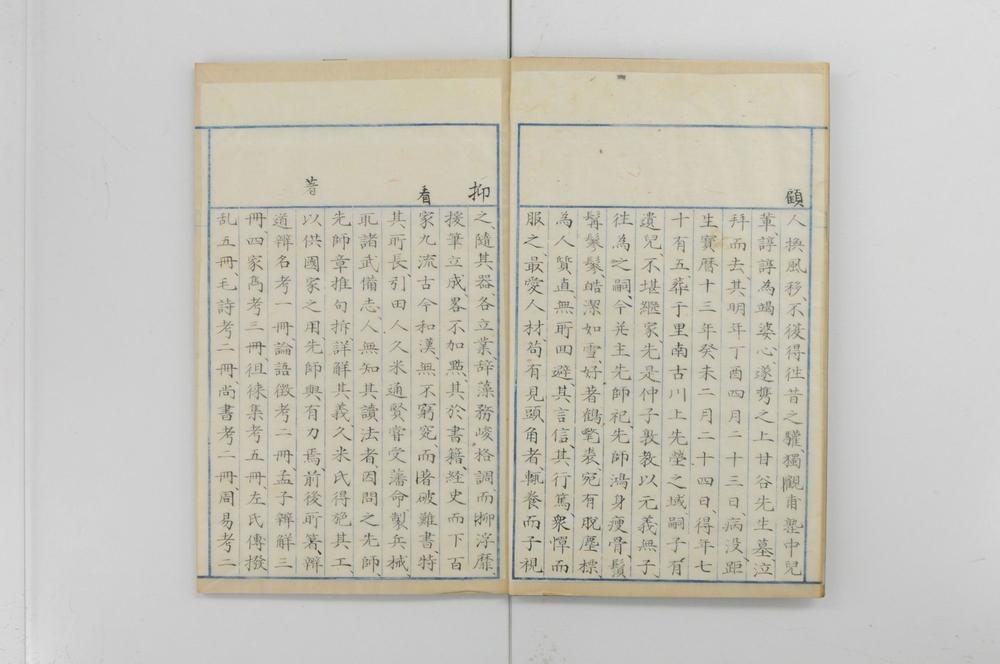 顧
人換風移、不復得往昔之驩、獨觀甫塾中兒
輩、諄諄為竭婆心、遂携之上甘谷先生墓、泣
拜而去、其明年丁酉四月二十三日、病没、距
生寶暦十三年癸未二月二十四日、得年七
十有五、葬于里南古川上先塋之域、嗣子有
遺兒、不堪継家、先是仲子敦教以元義無子
往為之嗣、今并主先師祀、先師鴻身痩骨、鬚
髯鬖鬖、皓潔如雪、好著鶴氅裘、宛有脱塵標、
為人質直無所回避、其言信、其行篤、衆憚而
服之、最愛人材、苟有見頭角者、輒養而子視
抑
之、隨其器、各立業、辞藻務峻格調而柳浮靡、
援筆立成、畧不加㸃、其於書籍、経史而下百
看
家九流古今和漢、無不窮究、而著破難書、特
其所長、引田人久米通賢甞受藩命製兵械、
取諸武備志、人無知其讀法者、因問之先師、
先師章推句折、詳解其義、久米氏得施其工、
著
以供國家之用、先師與有力焉、前後所著、辯
道辯名考一冊、論語徴考二冊、孟子辯解三
冊、四家雋考三冊、徂徠集考五冊、左氏傳撥
乱五冊、毛詩考二冊、尚書考二冊、周易考二